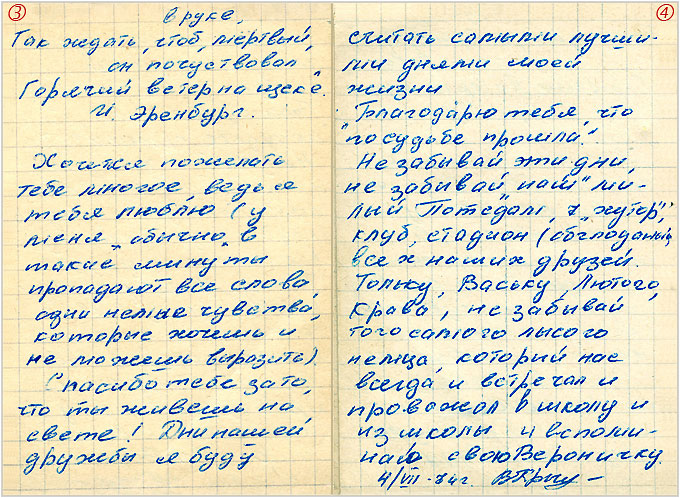 3
в руке,
Так ждать, чтоб, мёртвый,
он почуствовал
Горячий ветер на щеке".
И. Эренбург.
Хочется пожелать
тебе многое, ведь я
тебя люблю (у
меня обычно в
такие минуты
пропадают все слова,
одни немые чувства,
которые хочешь и
не можешь выразить).
Спасибо тебе за то,
что ты живешь на
свете! Дни нашей
дружбы я буду
4
считать самыми лучши-
ми днями моей
жизни
"Благодарю тебя, что
по судьбе прошла".
Не забывай эти дни,
не забывай наш "ми-
лый Потсдам", "хутор",
клуб, стадион (обглоданный
всех наших друзей.
Тольку, Ваську, Лютого,
Крава, не забывай
того самого лысого
немца, который нас
всегда и встречал и
провожал в школу и
из школы и вспоми-
нал свою Вероничку.
4/VII-